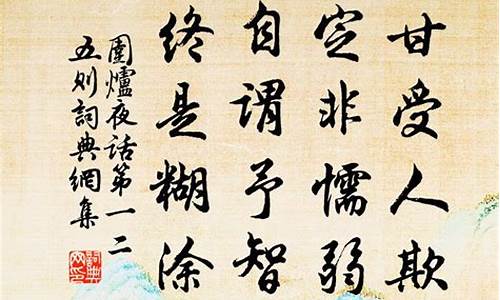 甘受人欺
定非懦弱
自谓予智
终是糊涂
圍爐夜话第一二
五则詞典網集